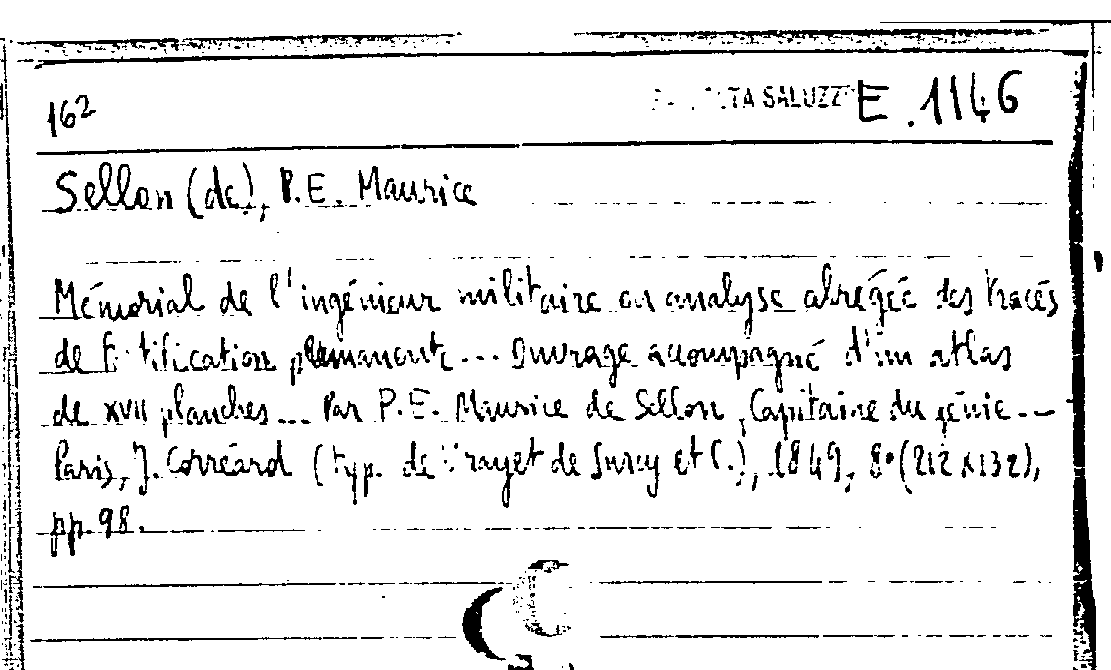 162 TA SALUZZ E. 1146
Sellon (de), P.E. Maurice
Mémorial de l'ingénieur militaire ou analyse abrégée des tracés
de fortification permanente... Ouvrage accompagné d'un atlas
de XVII planches... Par P.E. Maurice de Sellon, Capitaine du génie...
Paris, J. Corréard (typ. de de Surcy et C.), 1849, 8° (212x132),
pp. 98.